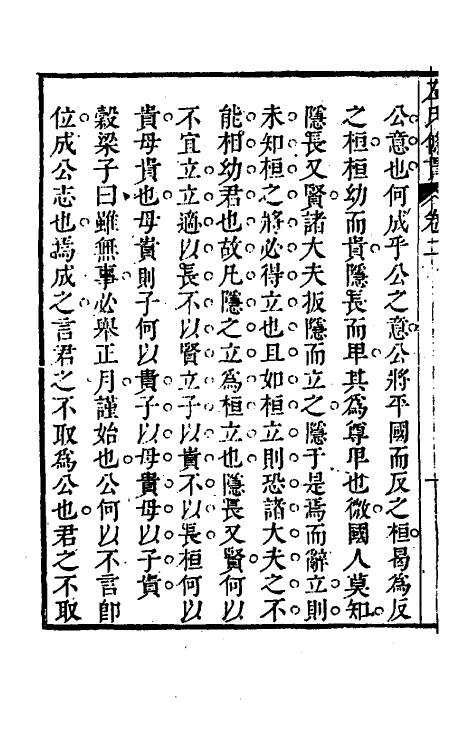 公意也何成乎公之意公將平國而反之桓曷為反
之桓桓幼而貴隱長而卑其為尊卑也微國人莫知
隱長又賢諸大夫扳隱而立之隱于是焉而辭立則
未知桓之將必得立也且如桓立則恐諸大夫之不
能相幼君也故凡隱之立為桓立也隱長又賢何以
不宜立立適以長不以賢立子以貴不以長桓何以
貴母貴也母貴則子何以貴子以母貴母以子貴
穀梁子曰雖無事必舉正月謹始也公何以不言卽
位成公志也焉成之言君之不取為公也君之不取